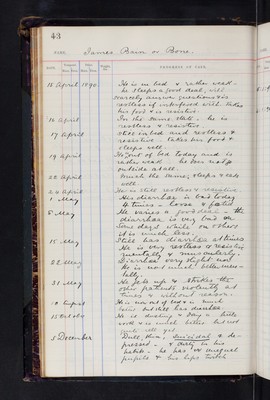 43
NAME. James Bain or Bone.
DATE. PROGRESS OF CASE.
15 April 1890 He is in bed & rather weak.
he sleeps a good deal, will
scarcely answer questions & is
restless if interfered with takes
his food & is resistive
16 April In the same state. he is
restless & resistive
17 April Still in bed and restless &
resistive - takes his food &
sleeps well.
19 April He is out of bed today and is
rather weak. he does not go
outside at all.
22 April much the same, sleeps & eats
well
24 April He is still restless & resistive
1 May His diarrhœa is bad today
at times - loose &
8 May He varies a good deal - the
diarrhœa is very bad on
some days while on others
it is much less.
15 May Still has diarrhœa at times
He is very restless &
mentally & muscularly.
22 May Diarrhœa very slight now
He is not much better men-
tally.
31 May He gets up & strikes the
other patients violently at
times & without reason.
1 August He is now out of bed & is
15 October He is dusting & doing a little
work & is much better but not
well yet
5 December Dull, thin, suicidal & de-
pressed - & dirty in his
habits. he has unequal
pupils & his lips twitch